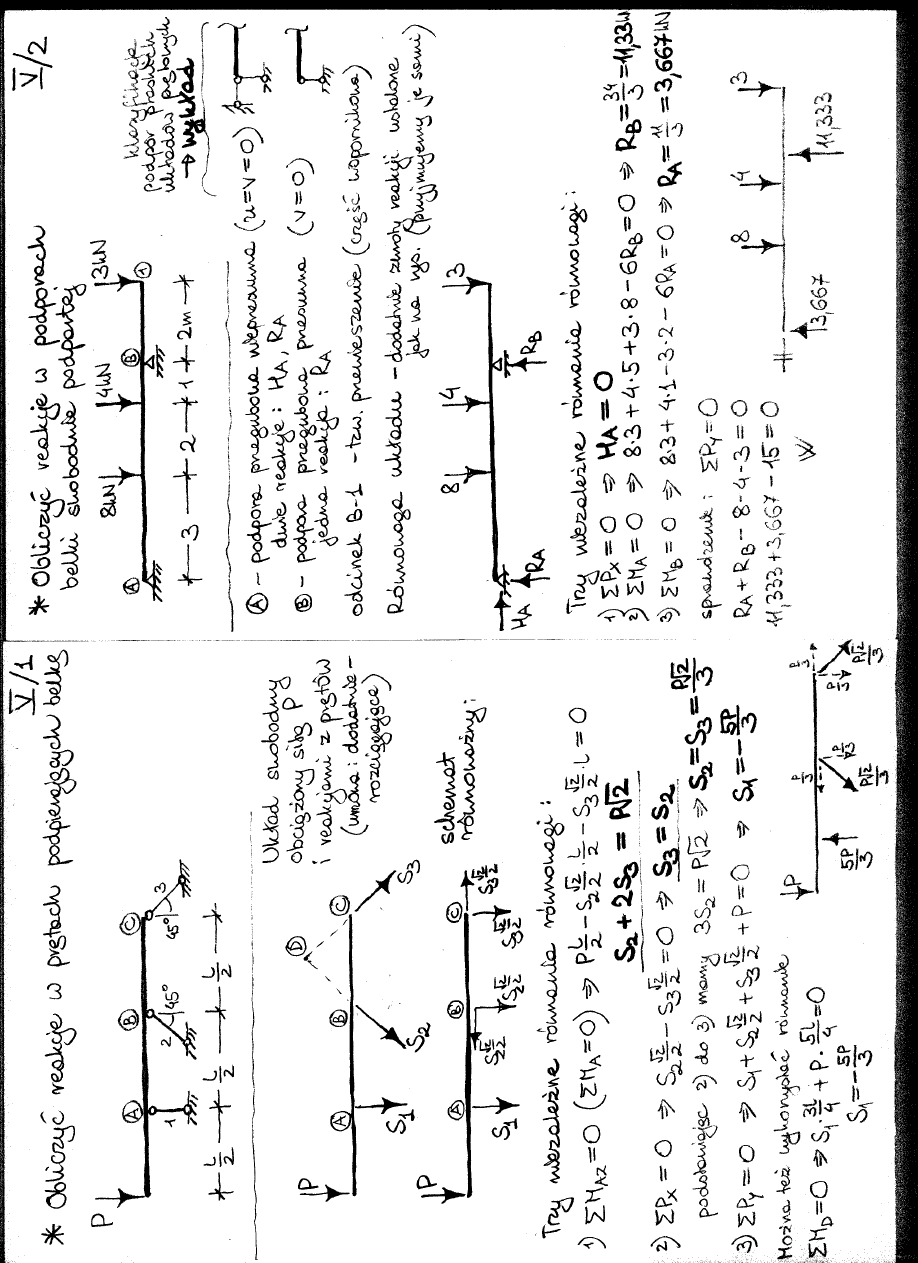 V/1
* Obliczyć reakcje w prętach podpierających belkę
P
A B C
1 2 45° 45° 3
L/2 L/2 L/2
Układ swobodny
obciążony siłą P
i reakcjami z prętów
(umowa: dodatnie -
rozciągające)
P
A B C D
S1 S2 S3
schemat
równoważny:
P
A B C
S1 S2√2/2 S2√2/2 S3√2/2 S3√2/2
Trzy niezależne równania równowagi:
1) ΣMAZ=0 (ΣMA=0) ⇒ P L/2 - S2 √2/2 L/2 - S3 √2/2 · L = 0
S2 + 2S3 = P√2
2) ΣPX = 0 ⇒ S2 √2/2 - S3 √2/2 = 0 ⇒ S3 = S2
podstawiając 2) do 3) mamy 3S2 = P√2 ⇒ S2 = S3 = P√2/3
3) ΣPY = 0 ⇒ S1 + S2 √2/2 + S3 √2/2 + P = 0 ⇒ S1 = -5P/3
Można też wykorzystać równanie
ΣMD = 0 ⇒ S1 · 3L/4 + P · 5L/4 = 0
S1 = -5P/3
P
5P/3 P√2/3 P/3 P/3 P/3 P/3 P√2/3
V/2
* Obliczyć reakcje w podporach
belki swobodnie podpartej
klasyfikacja
podpór płaskich
układów prętowych
→ wykład
8kN 4kN 3kN
A B 1
3 2 1 2m
A - podpora przegubowa nieprzesuwna (u=v=0)
dwie reakcje: HA, RA
B - podpora przegubowa przesuwna (v=0)
jedna reakcja: RA
odcinek B-1 - tzw. przewieszenie (część wspornikowa)
Równowaga układu - dodatnie zwroty reakcji ustalone
jak na rys. (przyjmujemy je sami)
8 4 3
HA RA RB
Trzy niezależne równania równowagi:
1) ΣPX = 0 ⇒ HA = 0
2) ΣMA = 0 ⇒ 8·3 + 4·5 + 3·8 - 6RB = 0 ⇒ RB = 34/3 = 11,33kN
3) ΣMB = 0 ⇒ 8·3 + 4·1 - 3·2 - 6RA = 0 ⇒ RA = 11/3 = 3,667kN
sprawdzenie: ΣPY = 0
RA + RB - 8 - 4 - 3 = 0
11,333 + 3,667 - 15 = 0
8 4 3
3,667 11,333